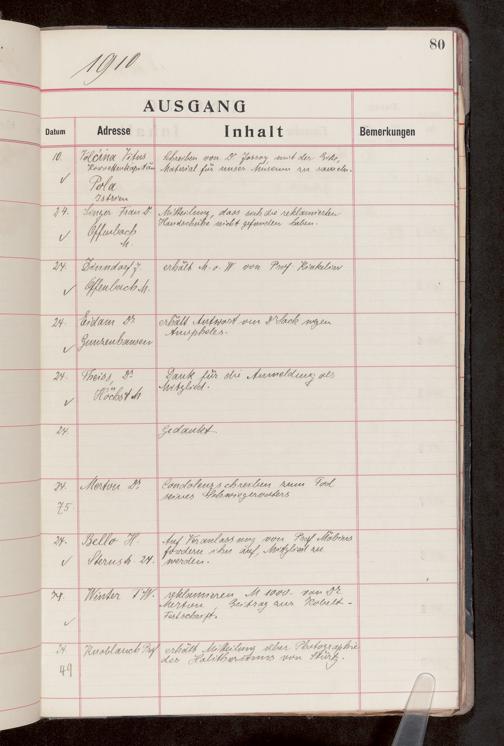 80
1910
AUSGANG
Datum Adresse Inhalt Bemerkungen
10. Vitus Schreiben von Dr. mit der
Material für unser Museum zu sammeln.
Pola
Istrien
24. Singer Frau D. Mitteilung, dass sich die reklamierten
Offenbach Handschuhe nicht gefunden haben.
M.
24. Zinndorf J. erhält M. v. W von Prof. Kinkelin
Offenbach M.
24. Eidam Dr. erhält Antwort von Dr Sack wegen
Gunzenhausen Anopheles.
24. Theiss, Dr. Dank für die Anmeldung als
Höchst M Mitglied.
24. Gedankt.
24. Merton Dr. Condolenzschreiben zum Tod
75. seines Schwiegervaters
24. Bello H. Auf Veranlassung von Prof Möbius
Sternstr. 24. fordern ihn auf, Mitglied zu
werden.
24. Winter F W. reklamieren M 1000. von Dr.
Merton, Beitrag zur Kobelt-
Festschrift.
24. Knoblauch Prof erhält Mitteilung über Photographie
49 der von Stürtz.